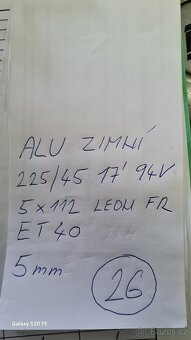 ALU ZIMNÍ
225/45 17' 94V
5x112 LEON FR
ET40
5mm
26
Galaxy S20 FE